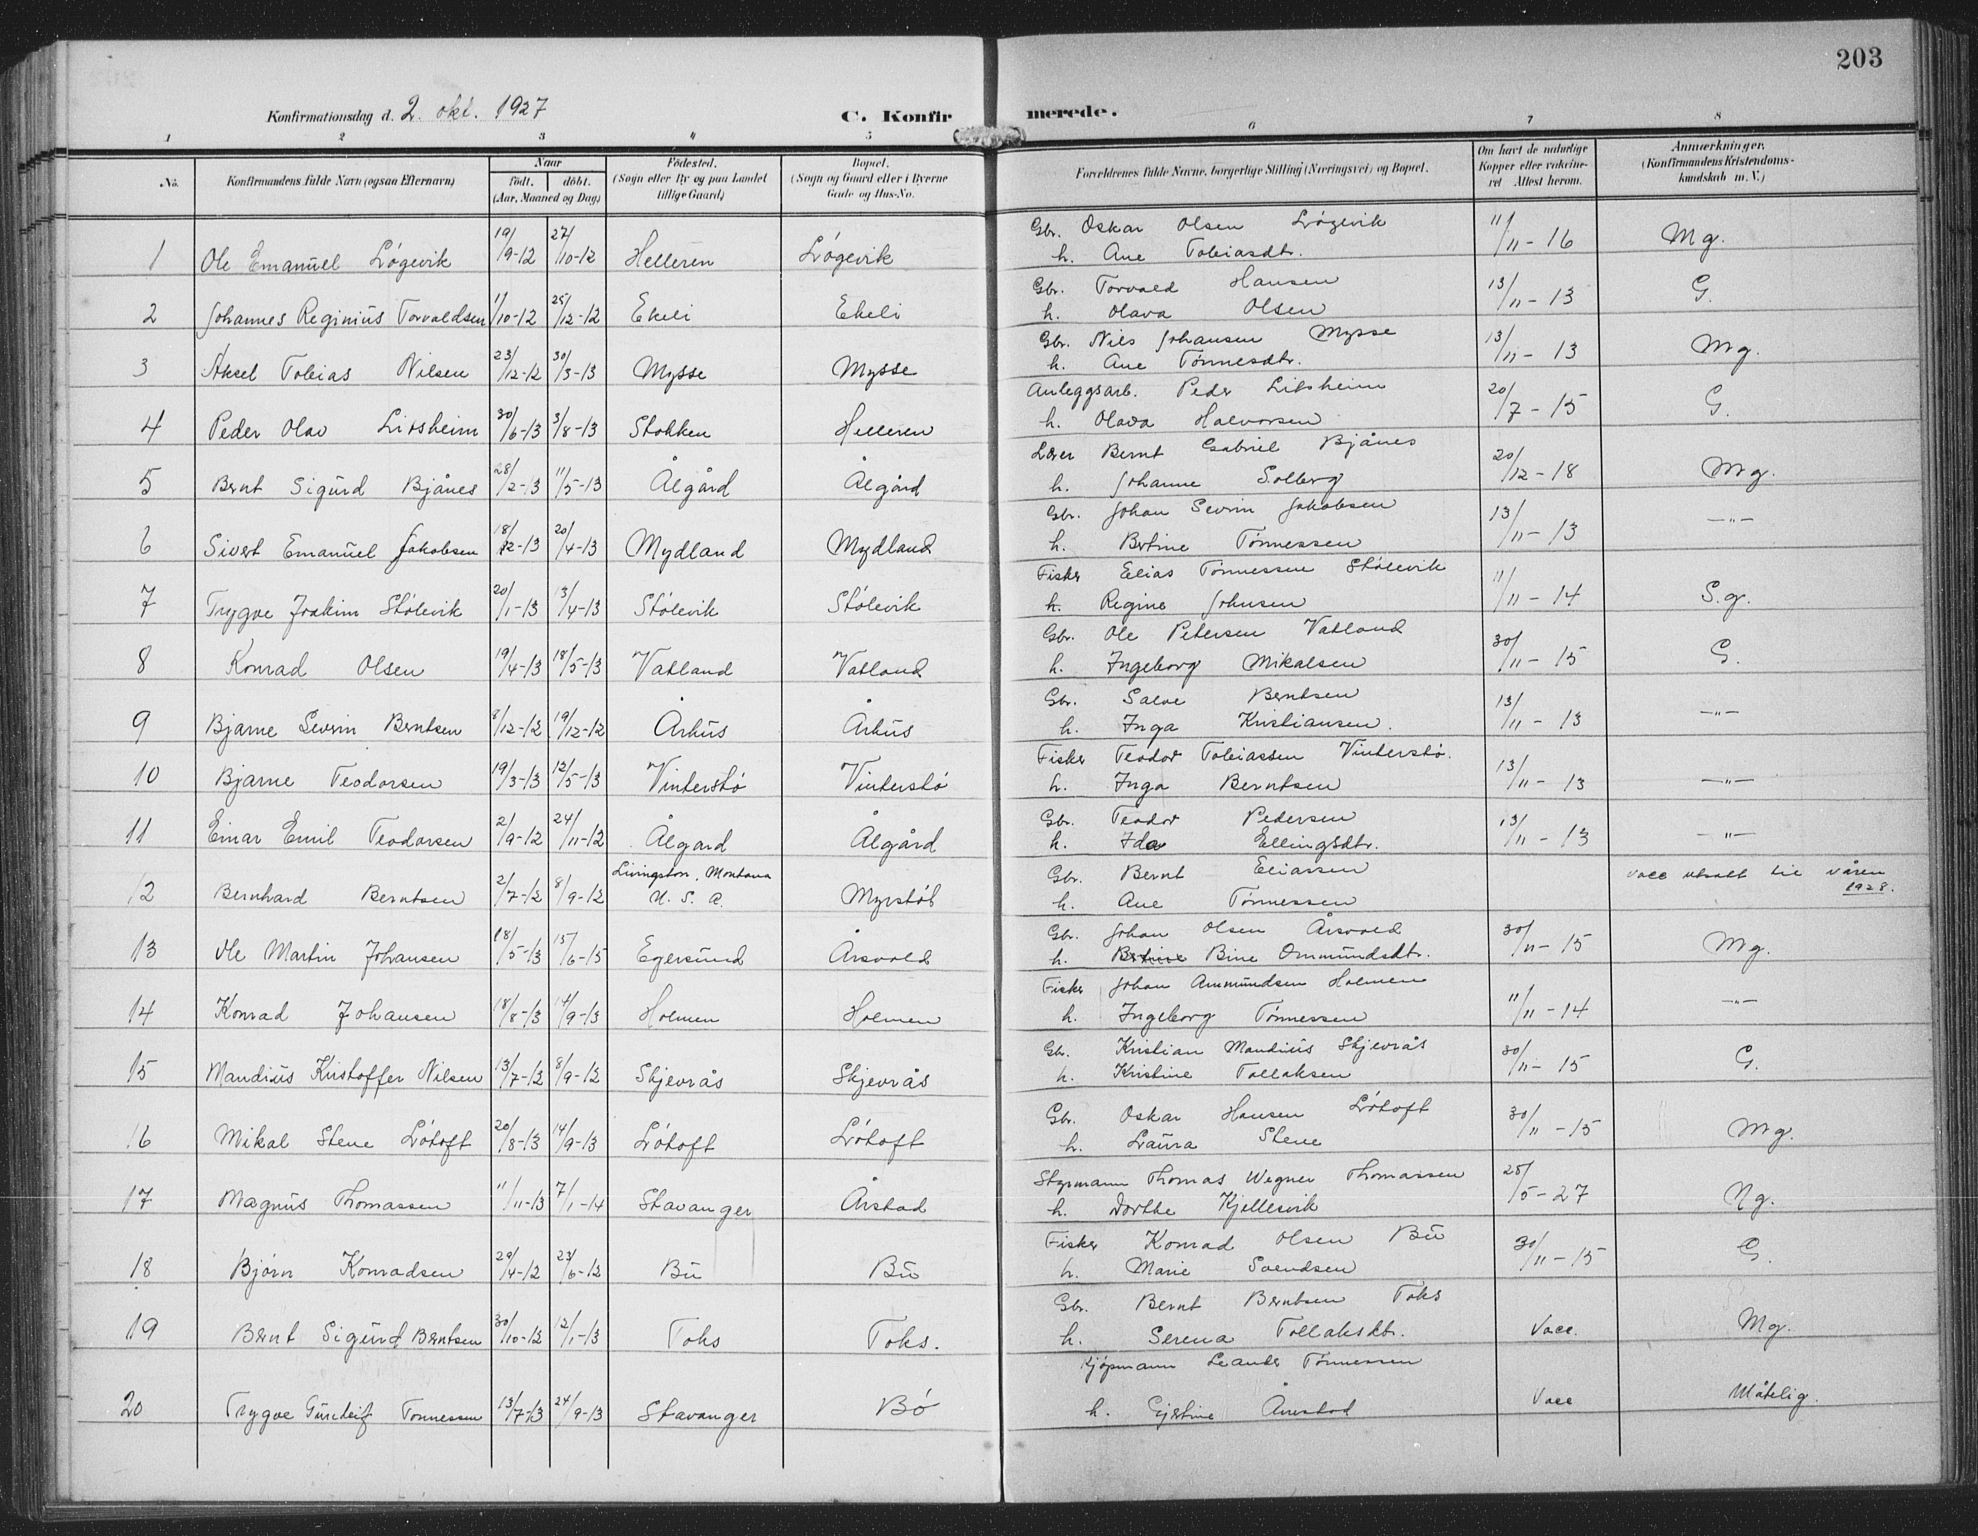 203
Konfirmationsdag d. 2. okt. 1927 C. Konfirmerede.
1 2 3 4 5 6 7 8
No. Konfirmandens fulde Navn (ogsaa Efternavn) Naar født. døbt. (Aar, Maaned og Dag) Fødested. (Sogn eller By og paa Landet tillige Gaard) Bopæl. (Sogn og Gaard eller i Byerne Gade og Hus-No. Forældrenes fulde Navne, borgerlige Stilling (Næringsvei) og Bopæl. Om havt de naturlige Kopper eller vakcineret Attest herom. Anmærkninger. (Konfirmandens Kristendomskundskab m. V.)
1 Ole Emanuel Løgevik 19/9-12 27/10-12 Helleren Løgevik Gbr. Oskar Olsen Løgevik 11/11-16 Mg.
h. Ane Tobiasdtr.
2 Johannes Reginius Torvaldsen 1/10-12 25/12-12 Ekeli Ekeli Gbr. Torvald Hansen 13/11-13 G.
h. Olava Olsen
3 Aksel Tobias Nilsen 23/12-12 30/3-13 Mysse Mysse Gbr. Nils Johansen Mysse 13/11-13 Mg.
h. Ane Tønnesdtr.
4 Peder Olav 30/6-13 3/8-13 Stokken Helleren Anleggsarb. Peder 20/7-15 G.
h. Olava Halvorsen
5 Bernt Sigurd Bjånes 28/2-13 11/5-13 Ålgård Ålgård Lærer Bernt Gabriel Bjånes 20/12-18 Mg.
h. Johanne Solberg
6 Sivert Emanuel Jakobsen 18/2-13 20/4-13 Mydland Mydland Gbr. Johan Sevrin Jakobsen 13/11-13 -"-
h. Bertine Tønnessen
7 Trygve Joakim Stølevik 20/1-13 13/4-13 Stølevik Stølevik Fisker Elias Tønnessen Stølevik 11/11-14 S.g.
h. Regine Johnsen
8 Konrad Olsen 19/4-13 18/5-13 Vatland Vatland Gbr. Ole Petersen Vatland 30/11-15 G.
h. Ingeborg Mikalsen
9 Bjarne Severin Berntsen 8/12-12 19/12-12 Århus Århus Gbr. Salve Berntsen 13/11-13 -"-
h. Inga Kristiansen.
10 Bjarne Teodorsen 19/3-13 12/5-13 Vinterstø Vinterstø Fisker Teodor Tobiassen Vinterstø. 13/11-13 -"-
h. Inga Berntsen
11 Einar Emil Teodorsen 2/9-12 24/11-12 Ålgard Ålgård Gbr. Teodor Pedersen 13/11-13 -"-
h. Ida Ellingsdtr.
12 Bernhard Berntsen 2/7-12 8/9-12 Livingston, Montana U. S. A. Myrstøl Gbr. Bernt Eliassen vacc utsatt til våren 1928.
h. Ane Tønnessen
13 Ole Martin Johansen 18/5-13 15/6-15 Egersund Årsvold Gbr. Johan Olsen Årsvold 30/11-15 Mg.
h. Bertine Bine Ommundsdtr.
14 Konrad Johansen 18/8-13 14/9-13 Holmen Holmen Fisker Johan Ammundsen Holmen 11/11-14 -"-
h. Ingeborg Tønnessen
15 Mandius Kristoffer Nilsen 13/7-12 8/9-12 Skjevrås Skjevrås Gbr. Kristian Mandius Skjevrås 30/11-15 G.
h. Kristine Tollaksen
16 Mikal Stene Løtoft 20/8-13 14/9-13 Løtoft Løtoft Gbr. Oskar Hansen Løtoft 30/11-15 Mg.
h. Laura Stene
17 Magnus Thomassen 11/11-13 7/1-14 Stavanger Årstad Styrmann Thomas Wegner Thomassen 25/5-27 Ng.
h. Dorthe Kjellesvik
18 Bjørn Konradsen 29/4-12 23/6-12 Bu Bu Fisker Konrad Olsen Bu 30/11-15 G.
h. Marie Svendsen
19 Bernt Sigurd Berntsen 30/10-12 12/1-13 Toks Toks. Gbr. Bernt Berntsen Toks Vacc. Mg.
h. Serena Tollaksdtr.
20 Trygve Tønnessen 13/7-13 24/9-13 Stavanger Bø Kjøpmann Leander Tønnessen Vacc Måtelig.
h. Gjertine Årrestad